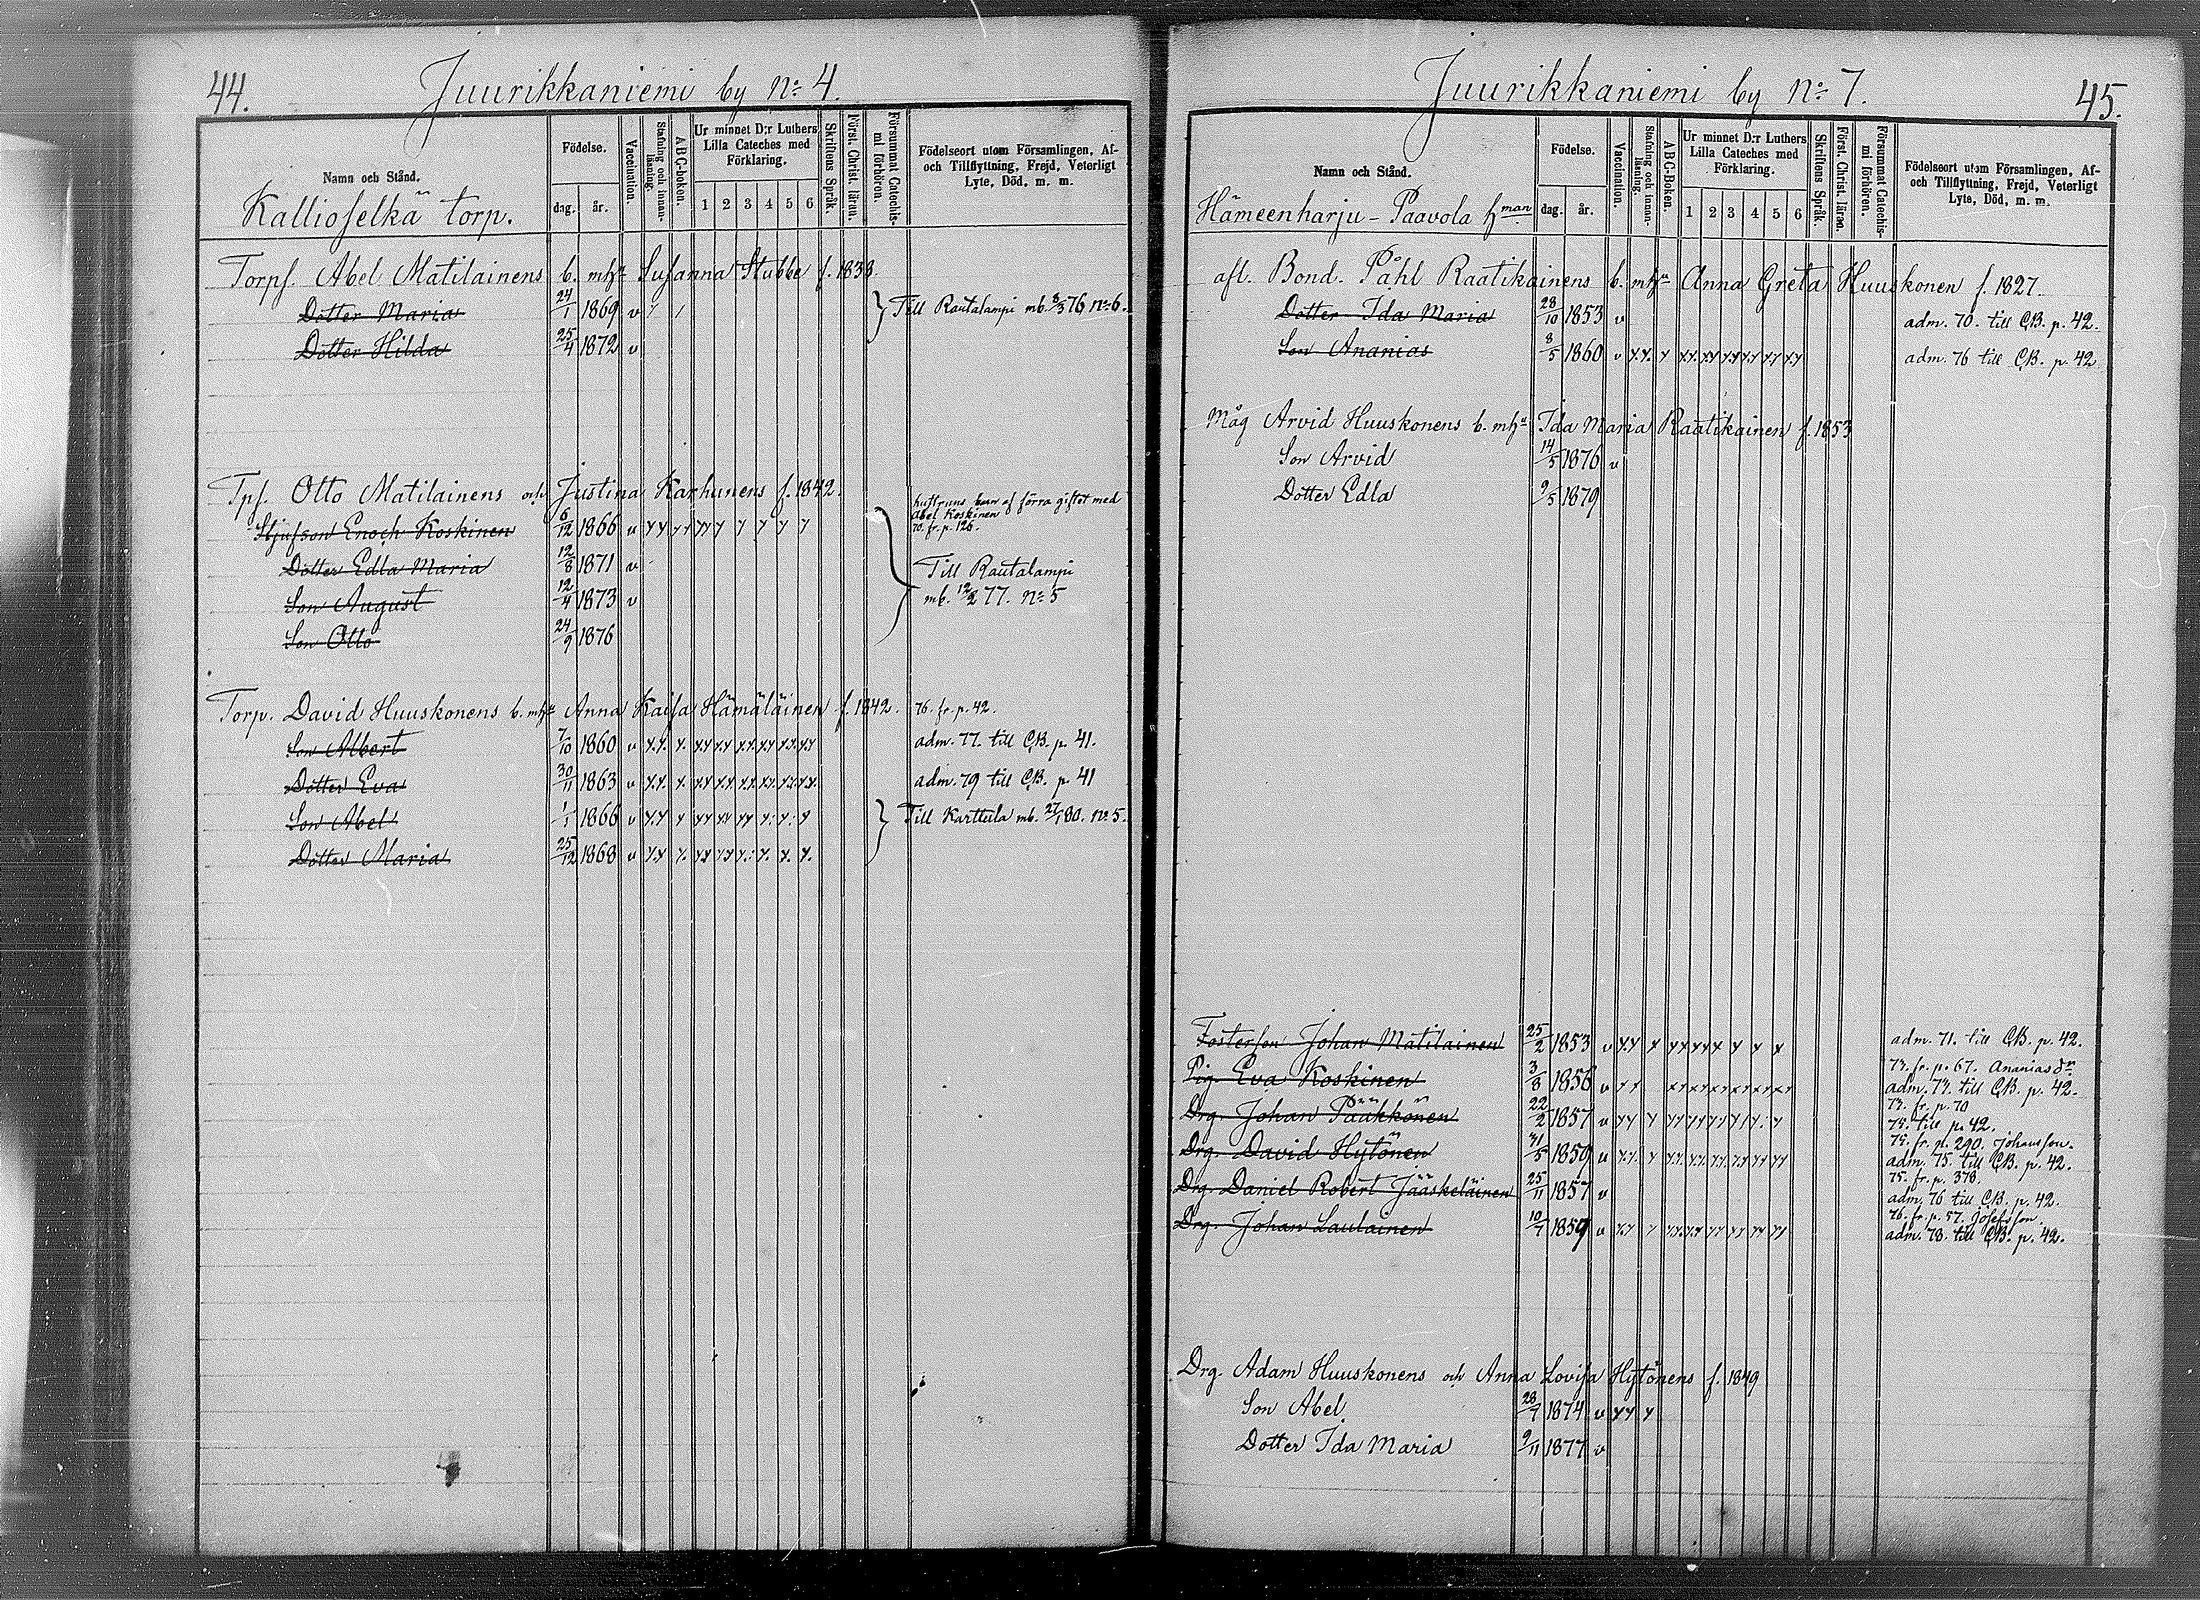 44.
Juurikkaniemi by No 4.
Namn och Stånd.
Födelse.
dag.
år.
Vaccination.
Stafning och innanläsning.
ABC-boken.
Ur minnet D:r Luthers
Lilla Cateches med
Förklaring.
1 2 3 4 5 6
Skriftens Språk.
Först. Christ. läran.
Försummat Catechismi förhören.
Födelseort utom Församlingen, Af-
och Tillflyttning, Frejd, Veterligt
Lyte, Död, m. m.
Kallioselkä torp.
Torpf. Abel Matilainens b. mh:u Susanna Stubbe f. 1838
Dotter Maria 24/1 1869 v
Till Rautalampi mb. 8/3 76 No 6.
Dotter Hilda 25/4 1872 v
Tpf. Otto Matilainens och Justina Karhunens f. 1842.
hustruns barn af förra giftet med
Abel Koskinen
70. fr. p. 126.
Stjufson Enoch Koskinen 6/12 1866 v
Dotter Edla Maria 12/8 1871 v
Till Rautalampi
Son August 12/4 1873 v
mb. 12/2 77. No 5
Son Otto 24/9 1876
Torp. David Huuskonens b. mh:u Anna Kaisa Hämäläinen f. 1842. 76. fr. p. 42.
Son Albert 7/10 1860 v adm. 77. till CB. p. 41.
Dotter Eva 30/11 1863 v adm. 79 till CB. p. 41
Son Abel 1/1 1866 v
Till Karttula mb. 27/1 80. No 5.
Dotter Maria 25/12 1868 v
Juurikkaniemi by No 7.
45.
Namn och Stånd.
Födelse.
dag.
år.
Vaccination.
Stafning och innanläsning.
ABC-Boken.
Ur minnet D:r Luthers
Lilla Cateches med
Förklaring.
1 2 3 4 5 6
Skriftens Språk.
Först. Christ. läran.
Försummat Catechismi förhören.
Födelseort utom Församlingen, Af-
och Tillflyttning, Frejd, Veterligt
Lyte, Död, m. m.
Hämeenharju - Paavola hman
afl. Bond. Påhl Raatikainens b. mh:u Anna Greta Huuskonen f. 1827.
Dotter Ida Maria 28/10 1853 v adm. 70. till CB. p. 42.
Son Ananias 8/5 1860 v adm. 76 till CB. p. 42
Måg Arvid Huuskonens b. mh:u Ida Maria Raatikainen f. 1853
Son Arvid 14/5 1876 v
Dotter Edla 9/5 1879
Fosterson Johan Matilainen 25/2 1853 v adm. 71. till CB. p. 42.
73. fr. p. 67. Ananias dr
Pig. Eva Koskinen 3/8 1856 v adm. 73. till CB. p. 42.
73. fr. p. 70
Drg. Johan Pääkkönen 22/2 1857 v 75. till p. 42.
75. fr. p. 290. Johansson.
Drg. David Hytönen 31/5 1859 v adm. 75. till CB. p. 42.
75. fr. p. 378.
Drg. Daniel Robert Jääskeläinen 25/11 1857 v adm. 76 till CB. p. 42.
76. fr. p. 57. Josefsson.
Drg. Johan Laulainen 10/7 1859 v adm. 78. till CB. p. 42.
Drg. Adam Huuskonens och Anna Lovisa Hytönens f. 1849
Son Abel 28/7 1874 v
Dotter Ida Maria 9/11 1877 v